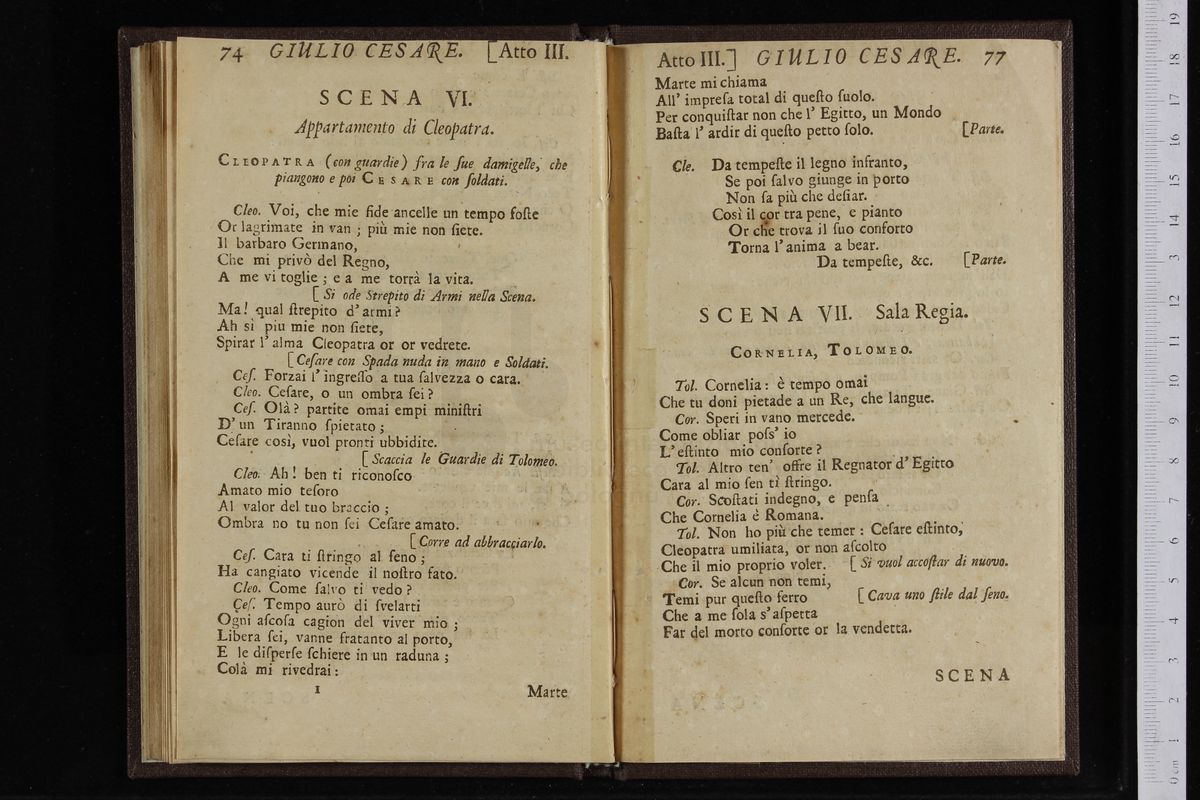 74 GIULIO CESARE. [Atto III.
SCENA VI.
Appartamento di Cleopatra.
CLEOPATRA (con guardie) fra le ſue damigelle, che
piangono e poi CESARE con ſoldati.
Cleo. Voi, che mie fide ancelle un tempo foſte
Or lagrimate in van ; più mie non ſiete.
Il barbaro Germano,
Che mi privò del Regno,
A me vi toglie ; e a me torrà la vita.
[ Si ode Strepito di Armi nella Scena.
Ma! qual ſtrepito d'armi?
Ah sì piu mie non ſiete,
Spirar l'alma Cleopatra or or vedrete.
[ Ceſare con Spada nuda in mano e Soldati.
Ceſ. Forzai l'ingreſſo a tua ſalvezza o cara.
Cleo. Ceſare, o un ombra ſei?
Ceſ. Olà? partite omai empi miniſtri
D'un Tiranno ſpietato ;
Ceſare così, vuol pronti ubbidite.
[ Scaccia le Guardie di Tolomeo.
Cleo. Ah! ben ti riconoſco
Amato mio teſoro
Al valor del tuo braccio ;
Ombra no tu non ſei Ceſare amato.
[ Corre ad abbracciarlo.
Ceſ. Cara ti ſtringo al ſeno ;
Ha cangiato vicende il noſtro fato.
Cleo. Come ſalvo ti vedo?
Ceſ. Tempo aurò di ſvelarti
Ogni aſcoſa cagion del viver mio ;
Libera ſei, vanne fratanto al porto,
E le diſperſe ſchiere in un raduna ;
Colà mi rivedrai :
I Marte
Atto III.] GIULIO CESARE. 77
Marte mi chiama
All' impreſa total di queſto ſuolo.
Per conquiſtar non che l'Egitto, un Mondo
Baſta l'ardir di queſto petto ſolo. [Parte.
Cle. Da tempeſte il legno infranto,
Se poi ſalvo giunge in porto
Non ſa più che deſiar.
Così il cor tra pene, e pianto
Or che trova il ſuo conforto
Torna l'anima a bear.
Da tempeſte, &c. [Parte.
SCENA VII. Sala Regia.
CORNELIA, TOLOMEO.
Tol. Cornelia : è tempo omai
Che tu doni pietade a un Re, che langue.
Cor. Speri in vano mercede.
Come obliar poſs' io
L'eſtinto mio conſorte?
Tol. Altro ten' offre il Regnator d'Egitto
Cara al mio ſen tì ſtringo.
Cor. Scoſtati indegno, e penſa
Che Cornelia è Romana.
Tol. Non ho più che temer : Ceſare eſtinto,
Cleopatra umiliata, or non aſcolto
Che il mio proprio voler. [ Si vuol accoſtar di nuovo.
Cor. Se alcun non temi,
Temi pur queſto ferro [ Cava uno ſtile dal ſeno.
Che a me ſola s'aſpetta
Far del morto conſorte or la vendetta.
SCENA
0 cm 1 2 3 4 5 6 7 8 9 10 11 12 13 14 15 16 17 18 19